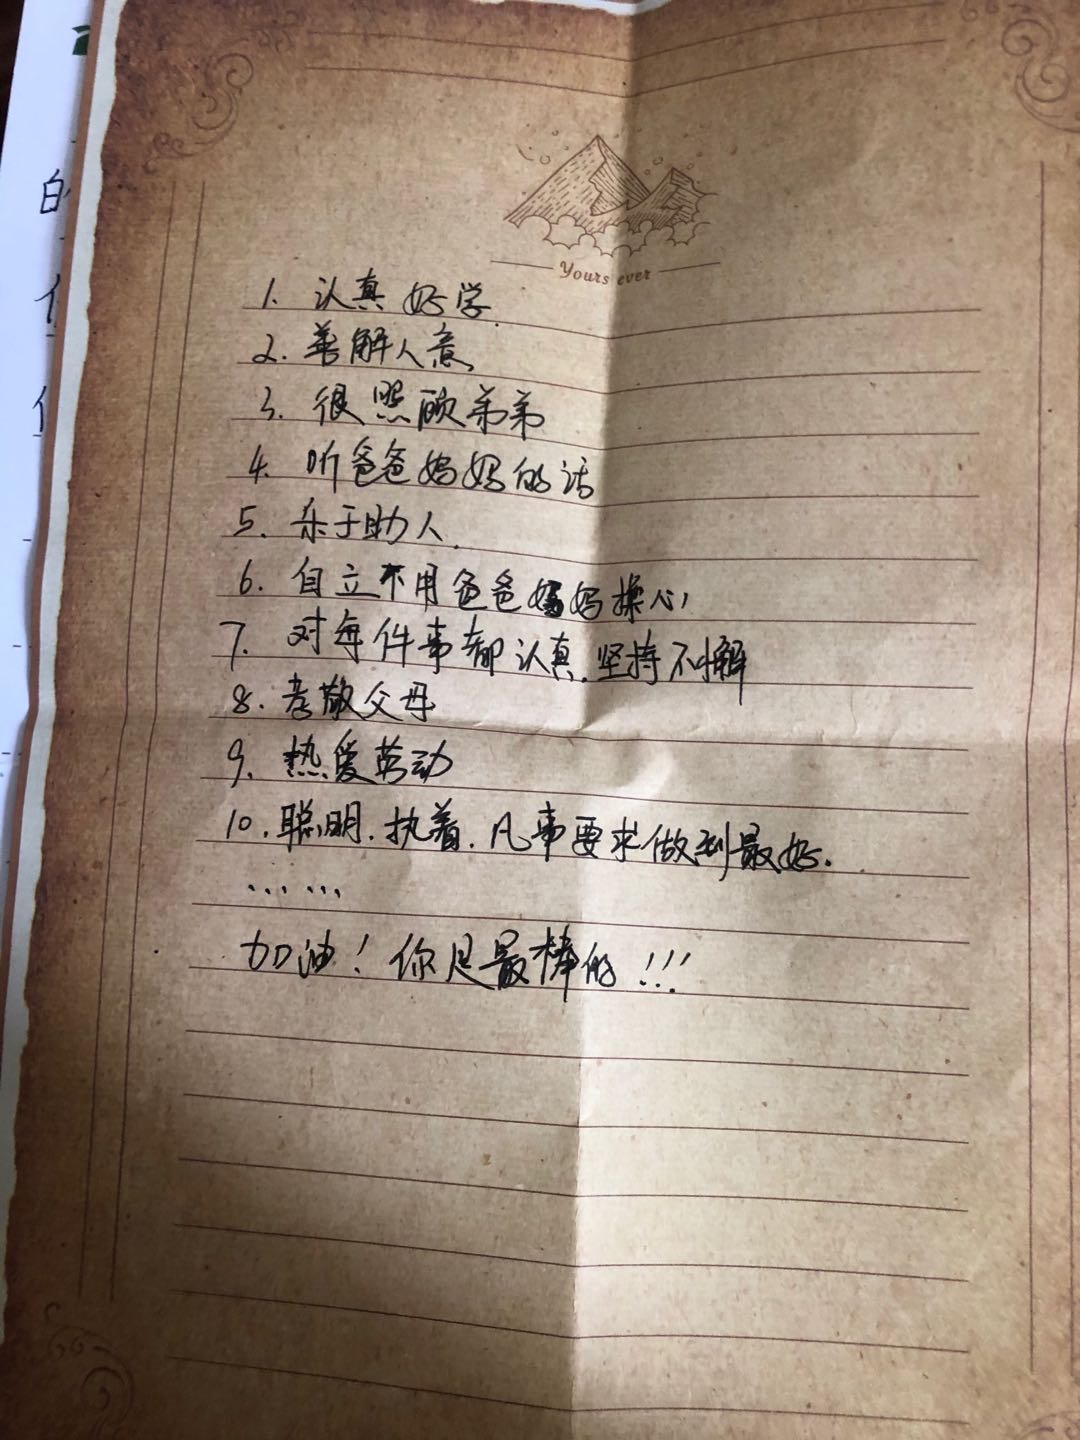 的
Yours ever
1. 认真好学.
2. 善解人意.
3. 很照顾弟弟
4. 听爸爸妈妈的话
5. 乐于助人.
6. 自立不用爸爸妈妈操心
7. 对每件事都认真.坚持不懈
8. 孝敬父母
9. 热爱劳动
10.聪明.执着.凡事要求做到最好.
……
加油！你是最棒的！！！